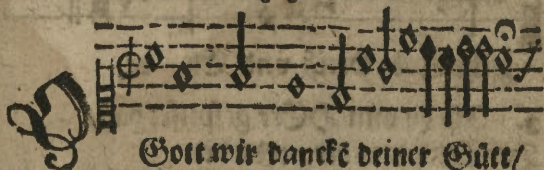 O Gott wir danckē deiner Gütt/